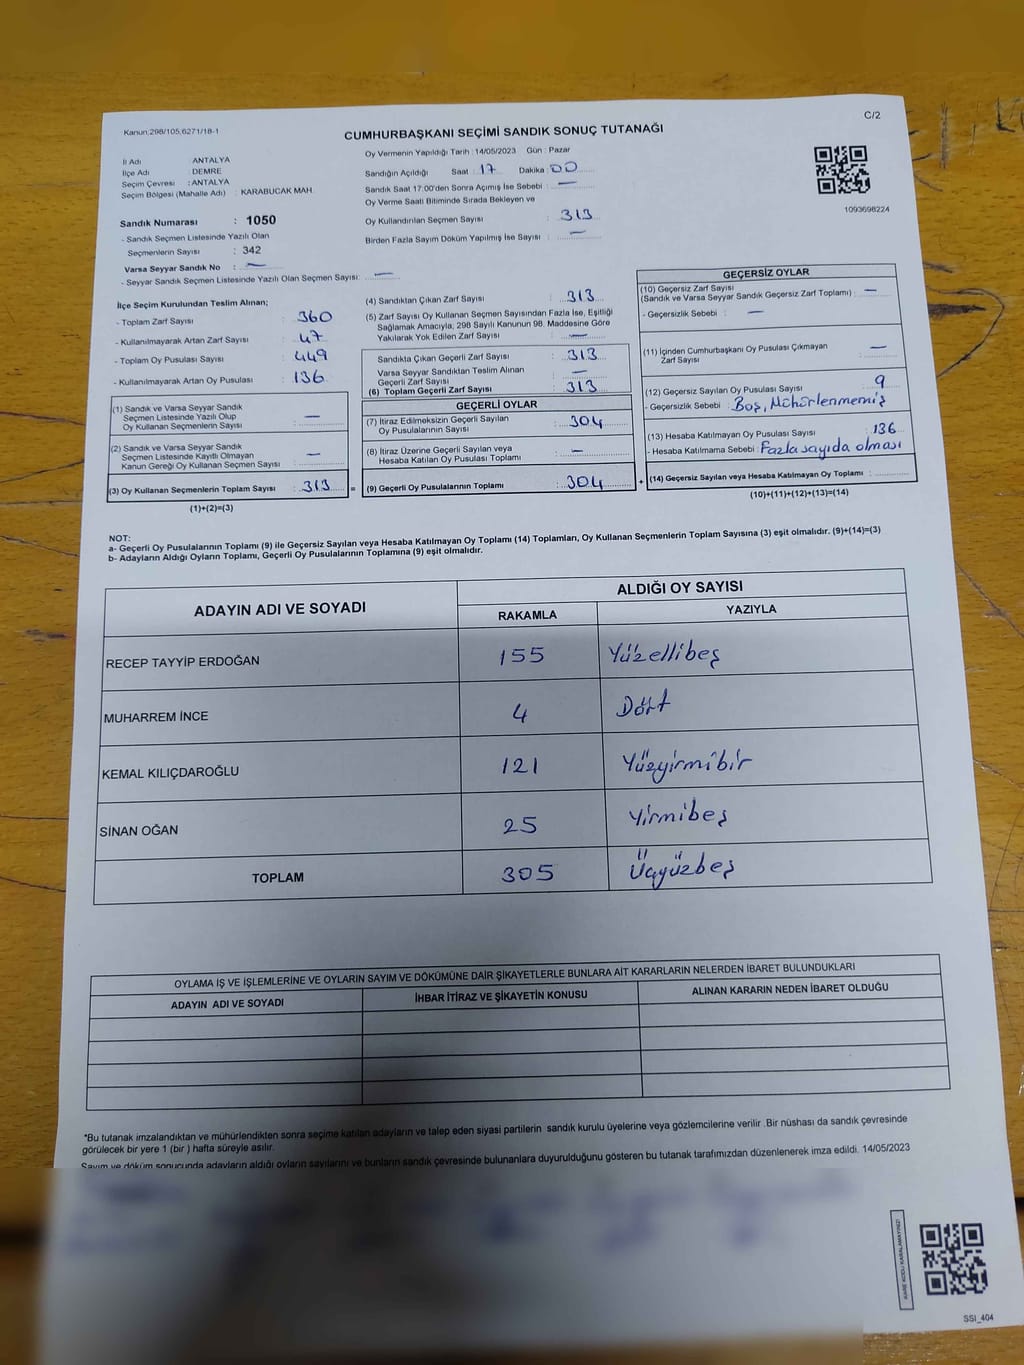 C/2
Kanun:298/105,6271/18-1
CUMHURBAŞKANI SEÇİMİ SANDIK SONUÇ TUTANAĞI
İl Adı : ANTALYA
İlçe Adı : DEMRE
Seçim Çevresi : ANTALYA
Seçim Bölgesi (Mahalle Adı) : KARABUCAK MAH.
Sandık Numarası : 1050
- Sandık Seçmen Listesinde Yazılı Olan
Seçmenlerin Sayısı : 342
Varsa Seyyar Sandık No : —
- Seyyar Sandık Seçmen Listesinde Yazılı Olan Seçmen Sayısı: —
Oy Vermenin Yapıldığı Tarih : 14/05/2023 Gün : Pazar
Sandığın Açıldığı Saat : 17 Dakika : 00
Sandık Saat 17:00'den Sonra Açımış İse Sebebi : —
Oy Verme Saati Bitiminde Sırada Bekleyen ve
Oy Kullandırılan Seçmen Sayısı : 313
Birden Fazla Sayım Döküm Yapılmış İse Sayısı : —
1093698224
İlçe Seçim Kurulundan Teslim Alınan;
- Toplam Zarf Sayısı : 360
- Kullanılmayarak Artan Zarf Sayısı : 47
- Toplam Oy Pusulası Sayısı : 449
- Kullanılmayarak Artan Oy Pusulası : 136
(1) Sandık ve Varsa Seyyar Sandık
Seçmen Listesinde Yazılı Olup
Oy Kullanan Seçmenlerin Sayısı : —
(2) Sandık ve Varsa Seyyar Sandık
Seçmen Listesinde Kayıtlı Olmayan
Kanun Gereği Oy Kullanan Seçmen Sayısı : —
(3) Oy Kullanan Seçmenlerin Toplam Sayısı : 313 =
(1)+(2)=(3)
(4) Sandıktan Çıkan Zarf Sayısı : 313
(5) Zarf Sayısı Oy Kullanan Seçmen Sayısından Fazla İse, Eşitliği
Sağlamak Amacıyla; 298 Sayılı Kanunun 98. Maddesine Göre
Yakılarak Yok Edilen Zarf Sayısı : —
Sandıkta Çıkan Geçerli Zarf Sayısı : 313
Varsa Seyyar Sandıktan Teslim Alınan
Geçerli Zarf Sayısı : —
(6) Toplam Geçerli Zarf Sayısı : 313
GEÇERLİ OYLAR
(7) İtiraz Edilmeksizin Geçerli Sayılan
Oy Pusulalarının Sayısı : 304
(8) İtiraz Üzerine Geçerli Sayılan veya
Hesaba Katılan Oy Pusulası Toplamı : —
(9) Geçerli Oy Pusulalarının Toplamı : 304 +
GEÇERSİZ OYLAR
(10) Geçersiz Zarf Sayısı
(Sandık ve Varsa Seyyar Sandık Geçersiz Zarf Toplamı) : —
- Geçersizlik Sebebi : —
(11) İçinden Cumhurbaşkanı Oy Pusulası Çıkmayan
Zarf Sayısı : —
(12) Geçersiz Sayılan Oy Pusulası Sayısı : 9
- Geçersizlik Sebebi : Boş, Mühürlenmemiş
(13) Hesaba Katılmayan Oy Pusulası Sayısı : 136
- Hesaba Katılmama Sebebi : Fazla sayıda olması
(14) Geçersiz Sayılan veya Hesaba Katılmayan Oy Toplamı :
(10)+(11)+(12)+(13)=(14)
NOT:
a- Geçerli Oy Pusulalarının Toplamı (9) ile Geçersiz Sayılan veya Hesaba Katılmayan Oy Toplamı (14) Toplamları, Oy Kullanan Seçmenlerin Toplam Sayısına (3) eşit olmalıdır. (9)+(14)=(3)
b- Adayların Aldığı Oyların Toplamı, Geçerli Oy Pusulalarının Toplamına (9) eşit olmalıdır.
ADAYIN ADI VE SOYADI ALDIĞI OY SAYISI
RAKAMLA YAZIYLA
RECEP TAYYİP ERDOĞAN 155 Yüzellibeş
MUHARREM İNCE 4 Dört
KEMAL KILIÇDAROĞLU 121 Yüzyirmibir
SİNAN OĞAN 25 Yirmibeş
TOPLAM 305 Üçyüzbeş
OYLAMA İŞ VE İŞLEMLERİNE VE OYLARIN SAYIM VE DÖKÜMÜNE DAİR ŞİKAYETLERLE BUNLARA AİT KARARLARIN NELERDEN İBARET BULUNDUKLARI
ADAYIN ADI VE SOYADI İHBAR İTİRAZ VE ŞİKAYETİN KONUSU ALINAN KARARIN NEDEN İBARET OLDUĞU
*Bu tutanak imzalandıktan ve mühürlendikten sonra seçime katılan adayların ve talep eden siyasi partilerin sandık kurulu üyelerine veya gözlemcilerine verilir .Bir nüshası da sandık çevresinde
görülecek bir yere 1 (bir ) hafta süreyle asılır.
Sayım ve döküm sonucunda adayların aldığı oyların sayılarını ve bunların sandık çevresinde bulunanlara duyurulduğunu gösteren bu tutanak tarafımızdan düzenlenerek imza edildi. 14/05/2023
KARE KODU KARALAMAYINIZ!
SSI_404